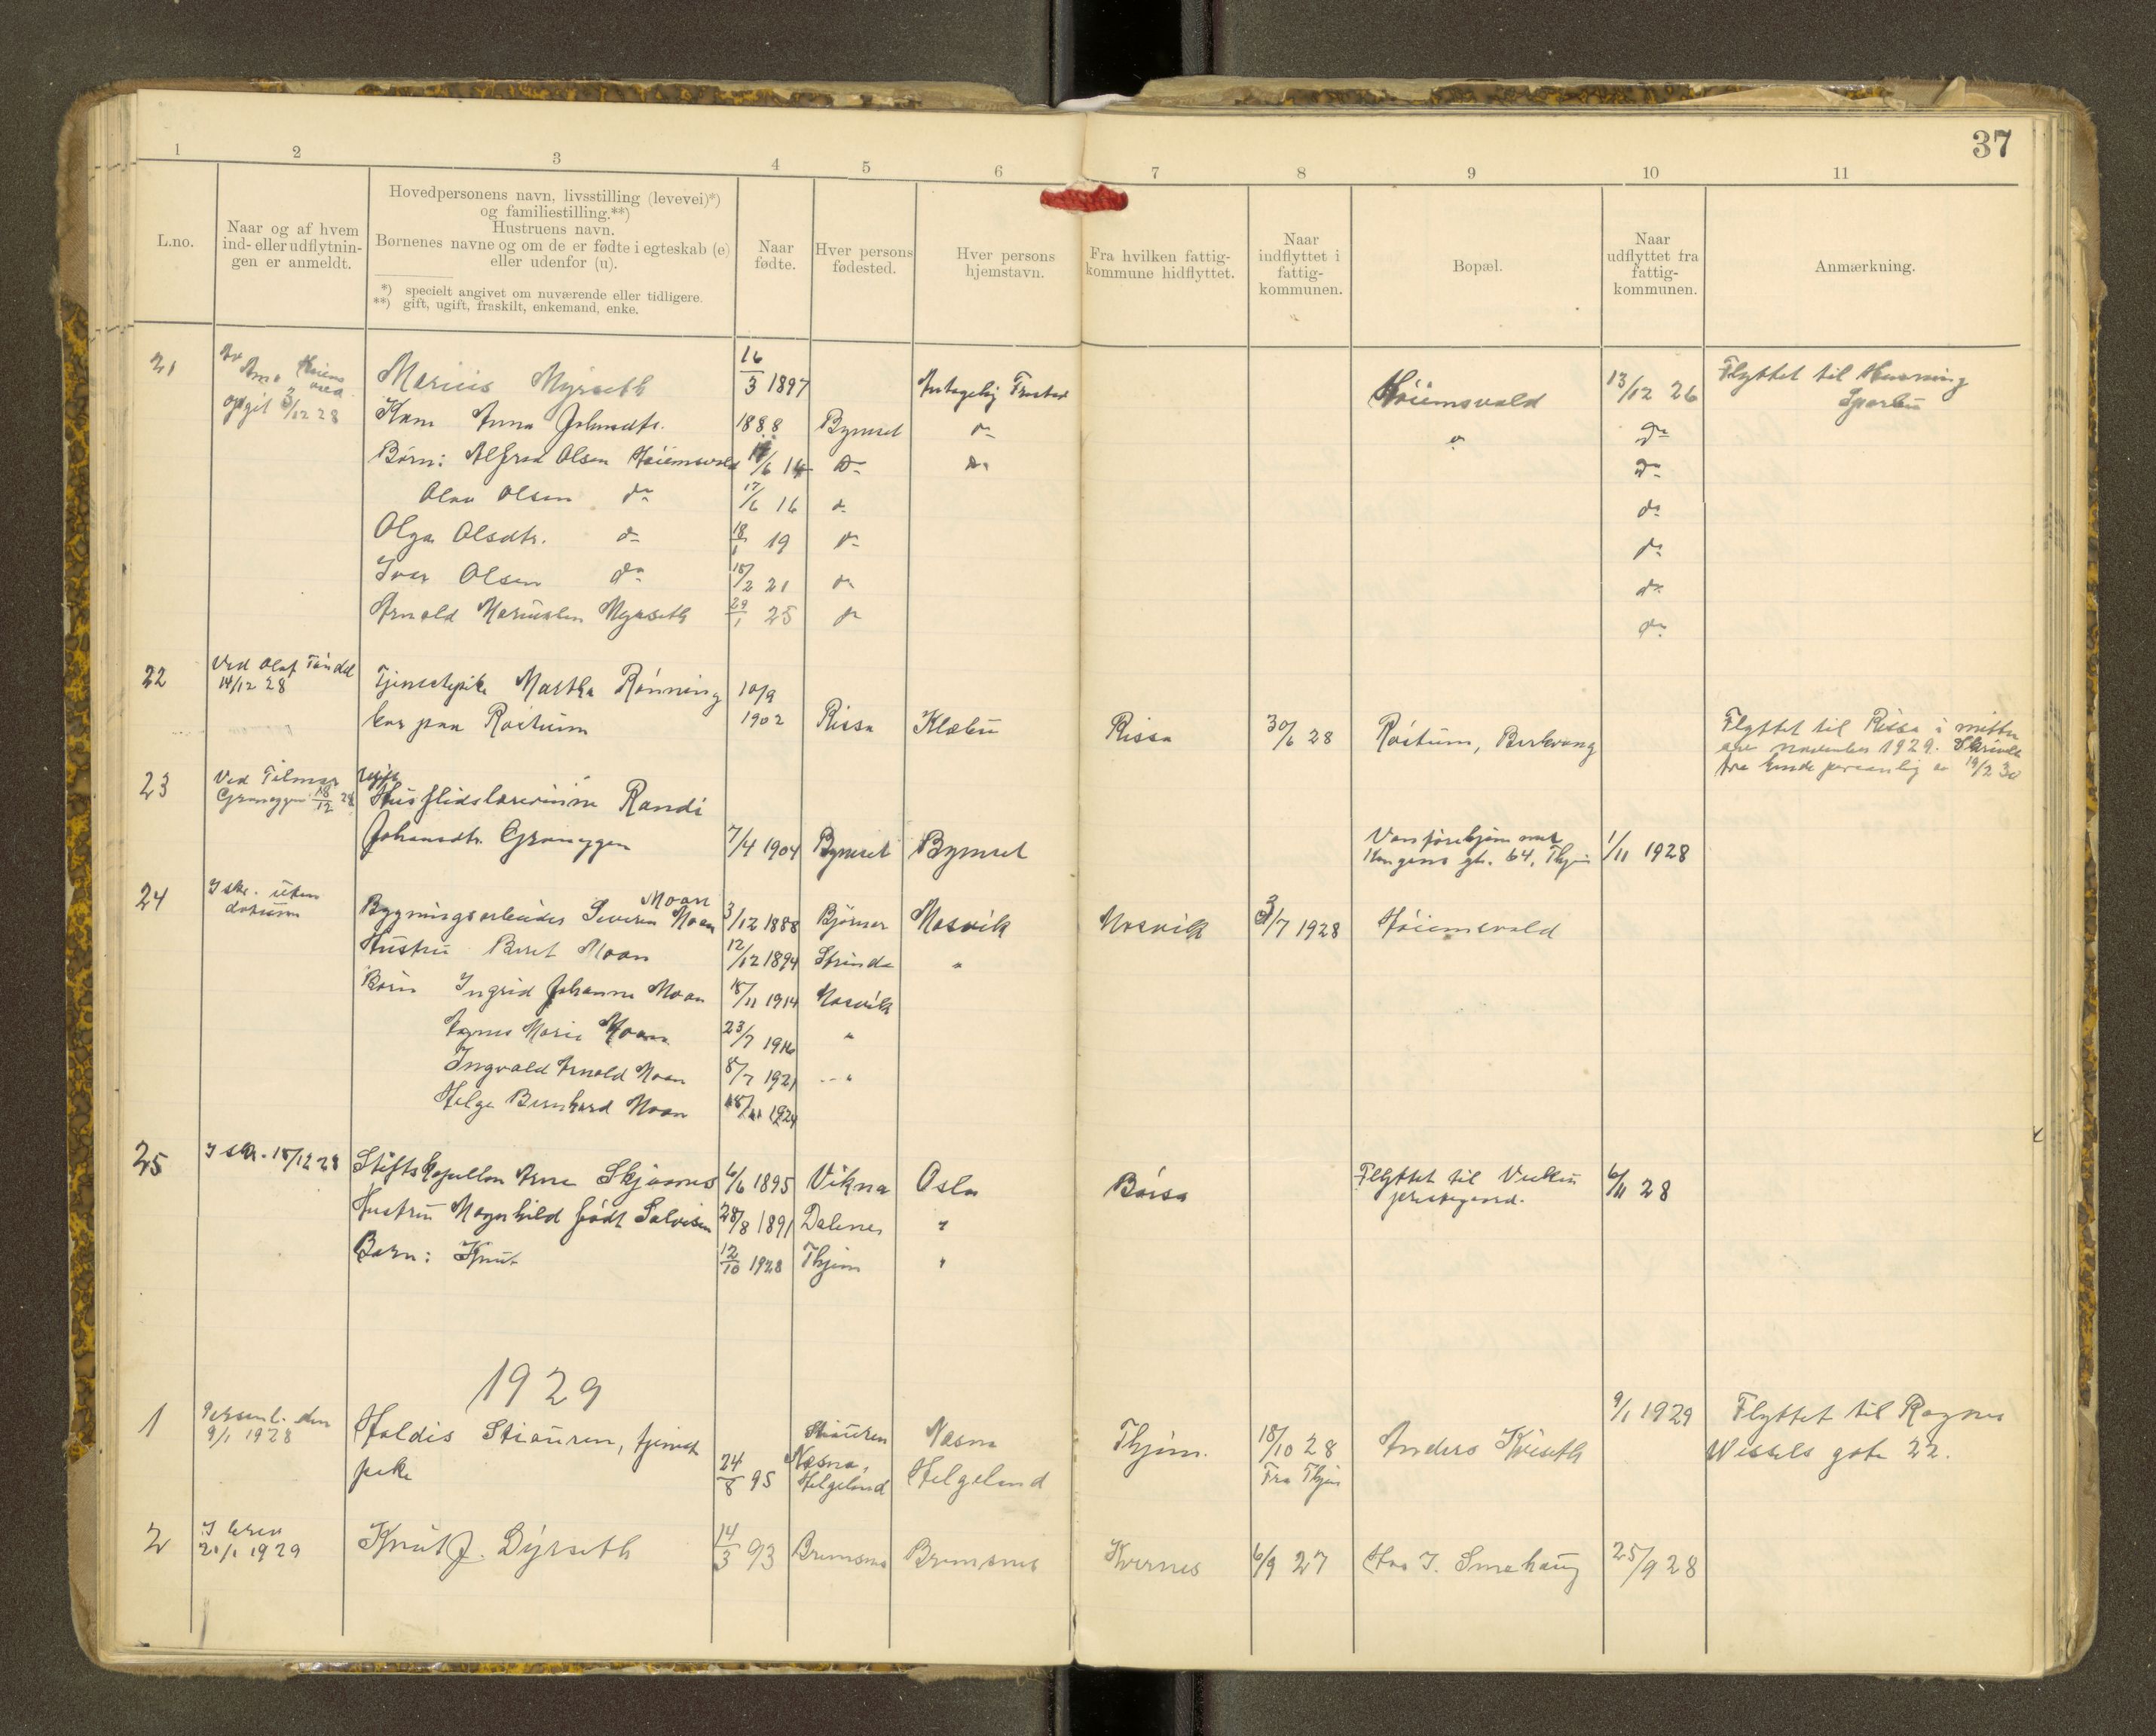 37
1 2 3 4 5 6 7 8 9 10 11
L.no.
Naar og af hvem
ind- eller udflytnin-
gen er anmeldt.
Hovedpersonens navn, livsstilling (levevei)*)
og familiestilling.**)
Hustruens navn.
Børnenes navne og om de er fødte i egteskab (e)
eller udenfor (u).
*) specielt angivet om nuværende eller tidligere.
**) gift, ugift, fraskilt, enkemand, enke.
Naar
fødte.
Hver persons
fødested.
Hver persons
hjemstavn.
Fra hvilken fattig-
kommune hidflyttet.
Naar
indflyttet i
fattig-
kommunen.
Bopæl.
Naar
udflyttet fra
fattig-
kommunen.
Anmærkning.
21 opgit 3/12 28 Marius Myrseth 16/3 1897 Antagelig Frosta Høiemsvald 13/12 26 Flyttet til
Sparbu
Kone Anna Johnsdtr. 1888 Bynset do " do
Børn: Alfred Olsen Høiemsvold 17/6 14 do do do
Olav Olsen do 17/6 16 do do
Olga Olsdtr. do 18/1 19 do do
Ivar Olsen do 15/2 21 do do
Arnold Mariuslen Myrseth 29/1 25 do do
22 Ved Olaf
14/12 28
Tjenestepike Martha Rønning 10/9
bor paa Røstum 1902 Rissa Klæbu Rissa 30/6 28 Røstum,
Flyttet til Rissa i midten
av november 1929.
19/2 30
23 Ved Tilmar
18/12 28
ugift
Husflidslærerinne Randi
Johansdtr. Graneggen 7/4 1904 Bynset Bynset
Kongens gt. 64, Thjem 1/11 1928
24 I skr. uten
datum
Moan
Bygningsarbeider Severin Moan 3/12 1888 Bjørnør Mosvik Mosvik 3/7 1928 Høiemsvald
Hustru Beret Moan 12/12 1894 Strinda "
Børn Ingrid Johanne Moan 15/11 1914 Mosvik
Agnes Marie Moan 23/7 1916 "
Ingvald Arnold Moan 8/7 1921 "
Helge Bernhard Moan 1924
25 I skr. 15/12 28 Stiftskapellan Arne Skjærnes 6/6 1895 Vikna Oslo Børsa Flyttet til
prestegaard. 6/11 28
Hustru Magnhild født Salvesen 28/8 1891 Dalene "
Barn: Knut 12/10 1928 Thjem "
1929
1 Personl. den
9/1 1928
Haldis Stiauren, tjeneste
pike 24/8 95
Stiauren
Næsna,
Helgeland
Næsna
Helgeland
Thjem. 18/10 28
Fra Thjem
Anders Kviseth 9/1 1929 Flyttet til Ragnes
Wessels gate 22.
2 I brev
21/1 1929 Knut J. Dyrseth 14/3 93 Bremsnes Bremsnes Kvernes 6/9 27 Hos I. Småhaug 25/9 28